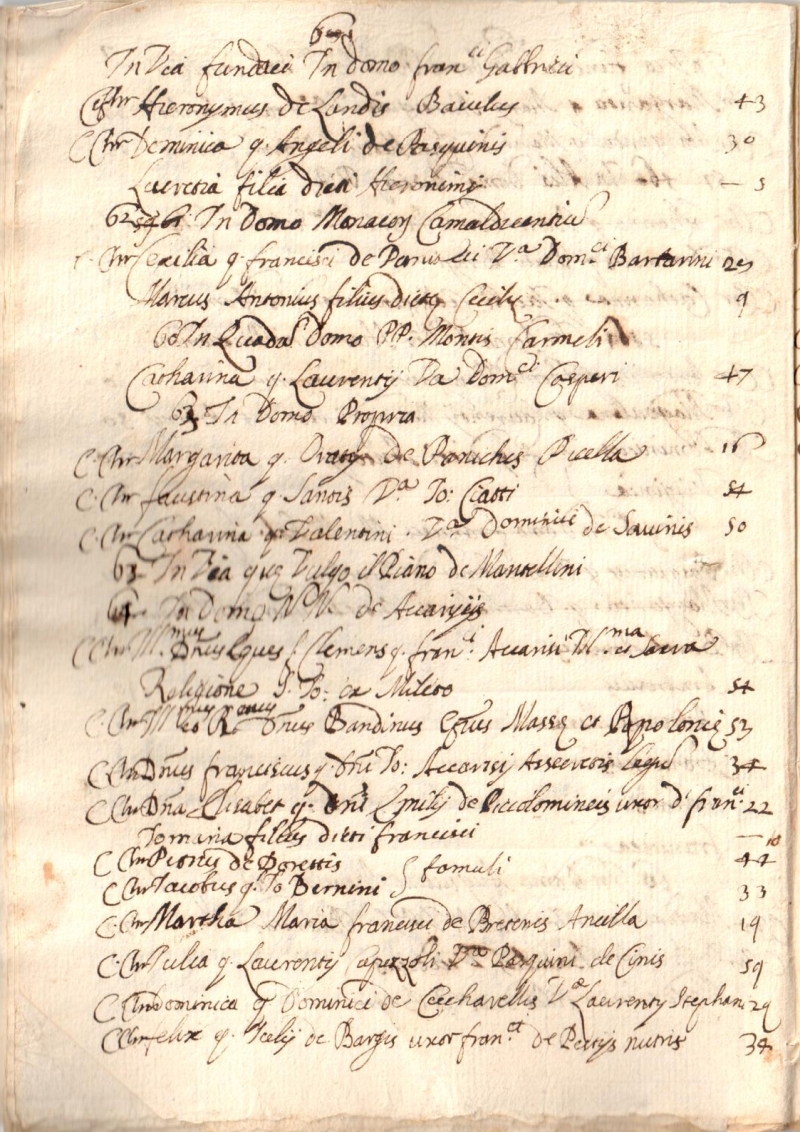 In Via fundaci In domo fran.ci Gabbrieli
C Chr Hieronymus de Landis Baiulus 43
C Chr Dominica q. Angeli de Pasquinis 30
Lucretia filia dicti Hieronimi — 5
62 In Domo Monacor Camaldulentiu
Chr Cecilia q. francisci de V.a Dom.ci Bartarini 29
Marcus Antonius filius dicte Cecilie 9
60 In Quada Domo PP. Montis Carmeli
Catharina q. Laurentij Va Dom.ci Casperi 47
63 In Domo Propria
C. Chr Margarita q. de Panichis Puella 16
C. Chr faustina q. Santis V.a Jo: Ciatti 54
C. Chr Catharina q. Valentini V.a Dominici de Sauinis 50
63 In Via que Vulgo il Piano de Mantellini
64 In Domo NN. de Accarigijs
C Chr Eques f. Clemens q. fran.ci Accarisi
Religione S. Jo: 54
C. Chr Bandinus Masse et Populonie 53
C Chr Dnus franciscus q. Dni Jo: Accarisij legu 34
C Chr Dna Elisabet q. Dni Emilij de Piccolomineis uxor d. fran.ci 22
filius dicti francisci — 10
C Chr Petrus de Dorettis 44
C Chr Jacobus q. Jo Bernini } famuli 33
C. Chr Martha Maria francisci de Ancilla 19
C. Chr Julia q. Laurentij V.a Pasquini de Cinis 59
C Chr Dominica q. Dominici de V.a Laurentij Stephani 29
C Chr felix q. de Bargis uxor fran.ci de Pettijs nutrix 34